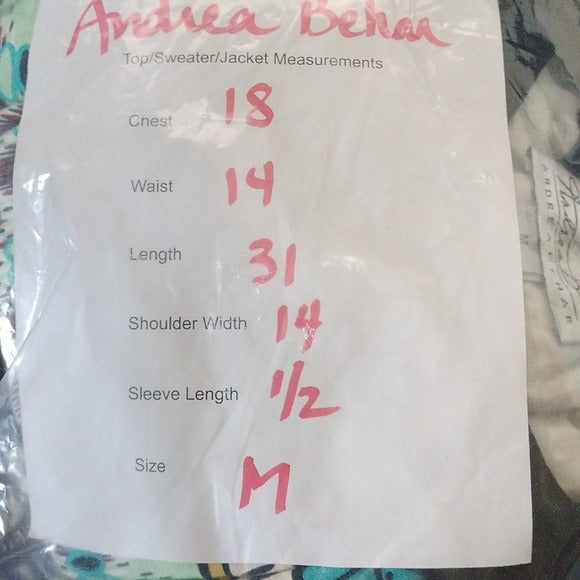 Andrea Behar
Top/Sweater/Jacket Measurements
Chest 18
Waist 14
Length 31
Shoulder Width 14
Sleeve Length 1/2
Size M